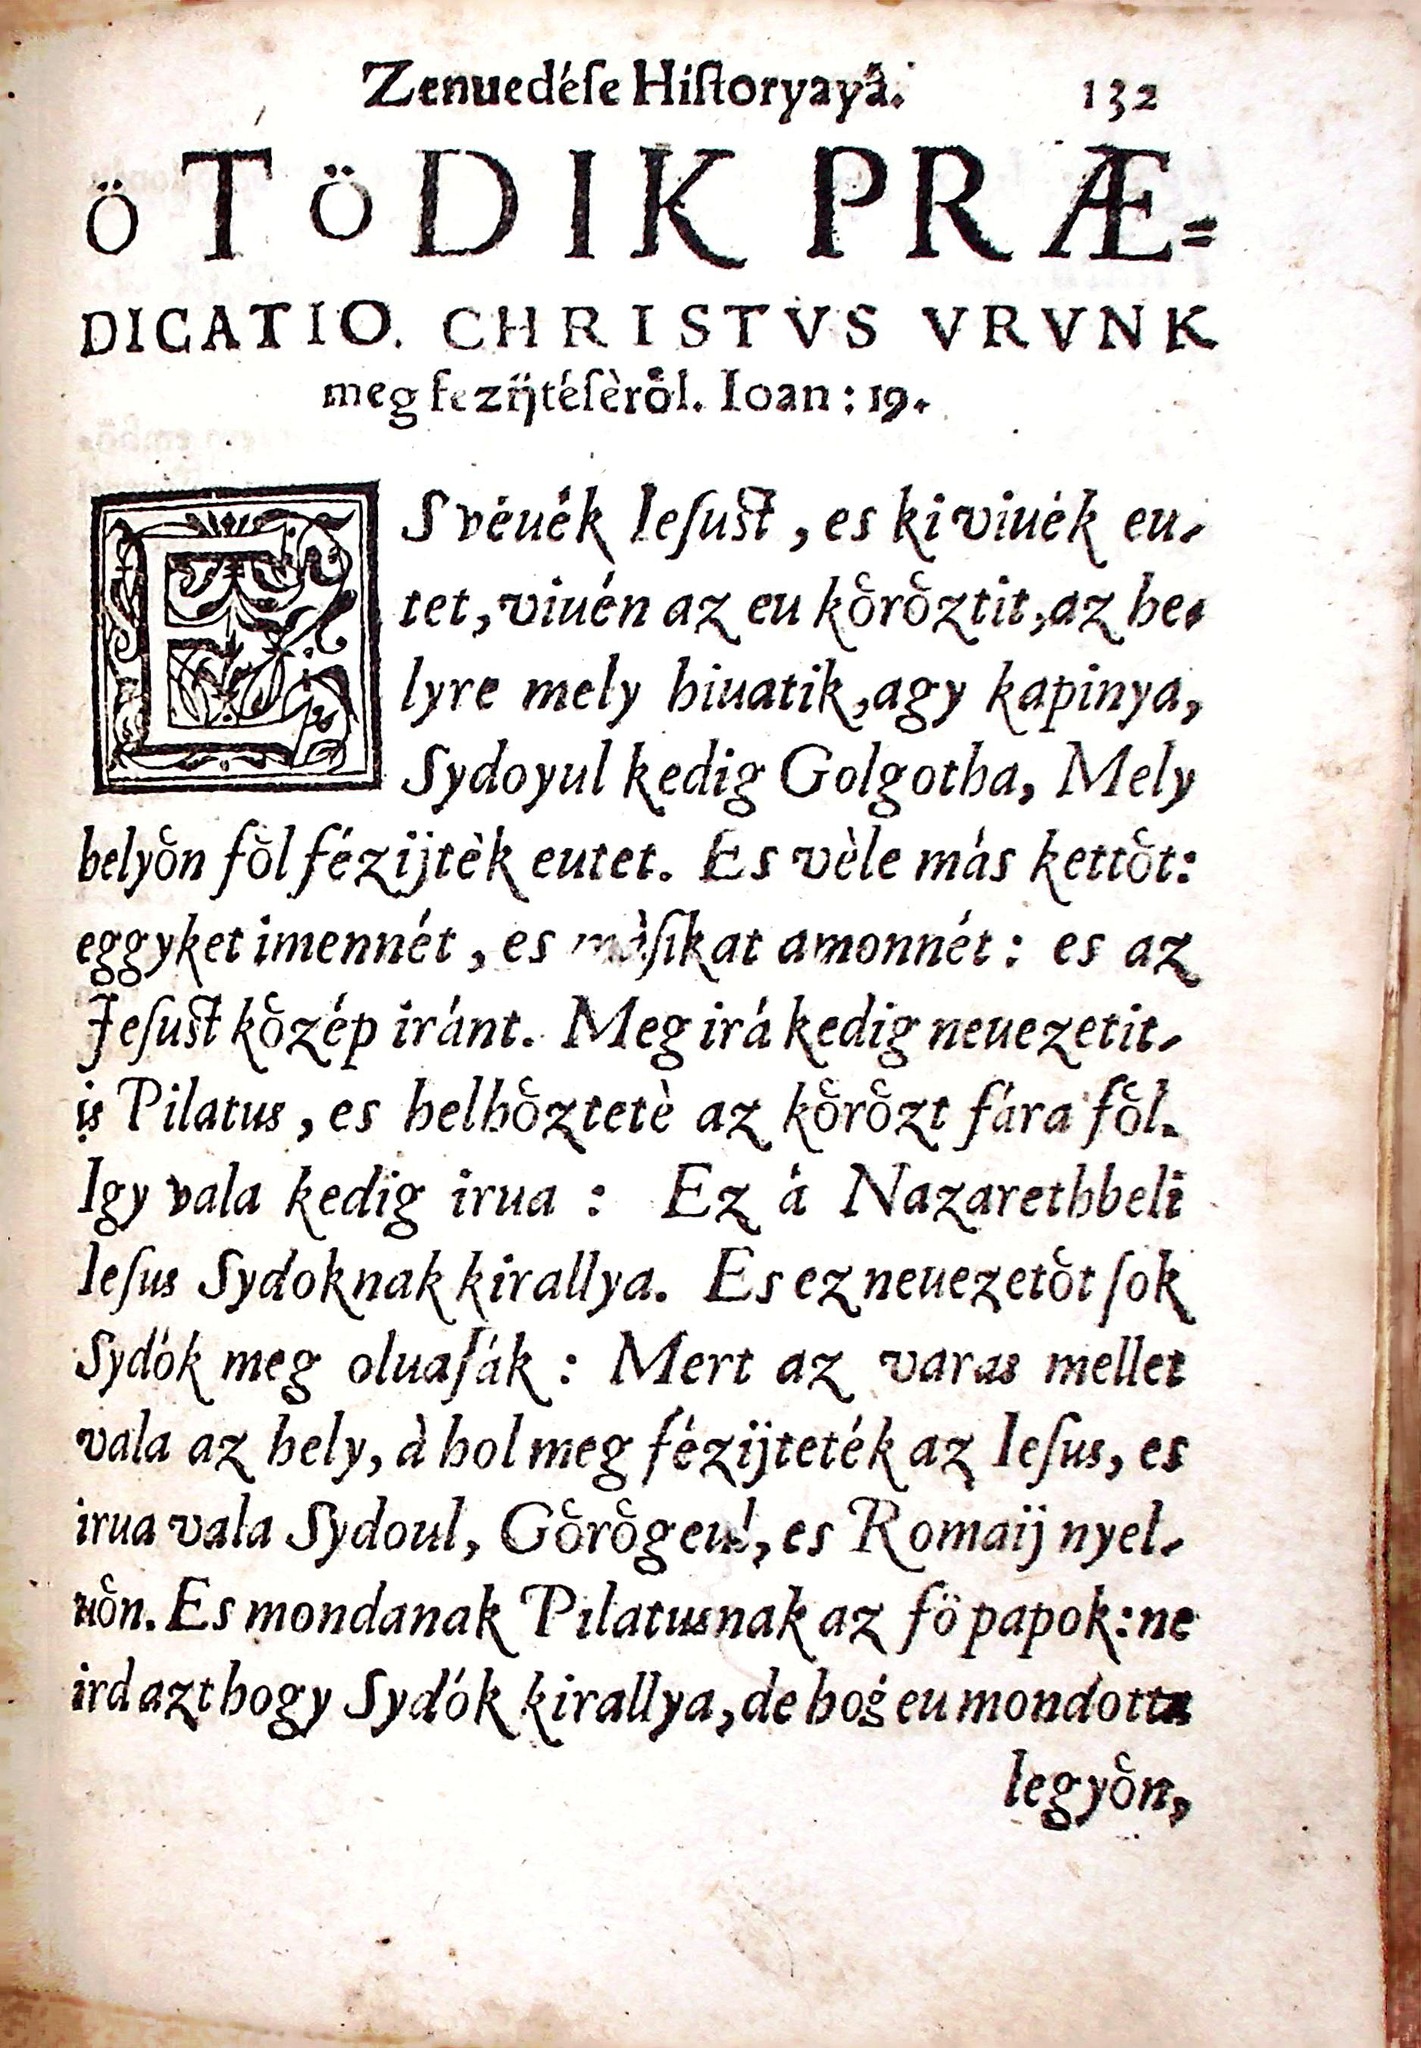 Zenuedéſe Hiſtoryayâ. 132
ÖTÖDIK PRÆ=
DICATIO. CHRISTVS VRVNK
meg fezijtéſèrol. Ioan: 19.
ES véuék Ieſuſt, es ki viuék eu-
tet, viuén az eu kòròztit, az he-
lyre mely hiuatik, agy kapinya,
Sydoyul kedig Golgotha, Mely
helyòn fòl fézijtèk eutet. Es vèle más kettòt:
eggyket imennét, es màſikat amonnét: es az
Jeſuſt kòzép iránt. Meg irá kedig neuezetit-
is Pilatus, es helhòztetè az kòròzt fára fòl.
Igy vala kedig irua: Ez á Nazarethbeli
Ieſus Sydoknak kirallya. Es ez neuezetòt ſok
Sydók meg oluaſák: Mert az varas mellet
vala az hely, à hol meg fézijteték az Ieſus, es
irua vala Sydoul, Gòrògeul, es Romaij nyel-
uòn. Es mondanak Pilatusnak az fö papok: ne
ird azt hogy Sydók kirallya, de hoǵ eu mondotta
legyòn,